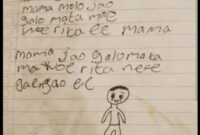 mama molo jao
galo mata moe
rita ee mama
mama jao galo mata
ma moe rita nese
ee